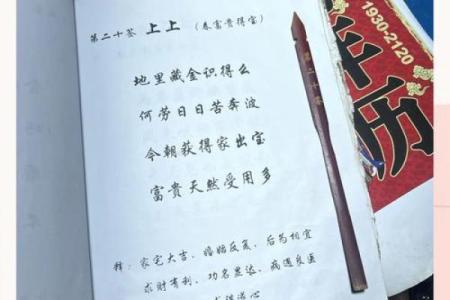 第二十签 上上 (叁富贵得宝)
地里藏金识得么
何劳日日苦奔波
今朝获得家出宝
富贵天然受用多
释: 家宅大吉、婚姻反复、后为相宜
求财有利、功名显达、病遇良医
第二十签
1930-2120
年历